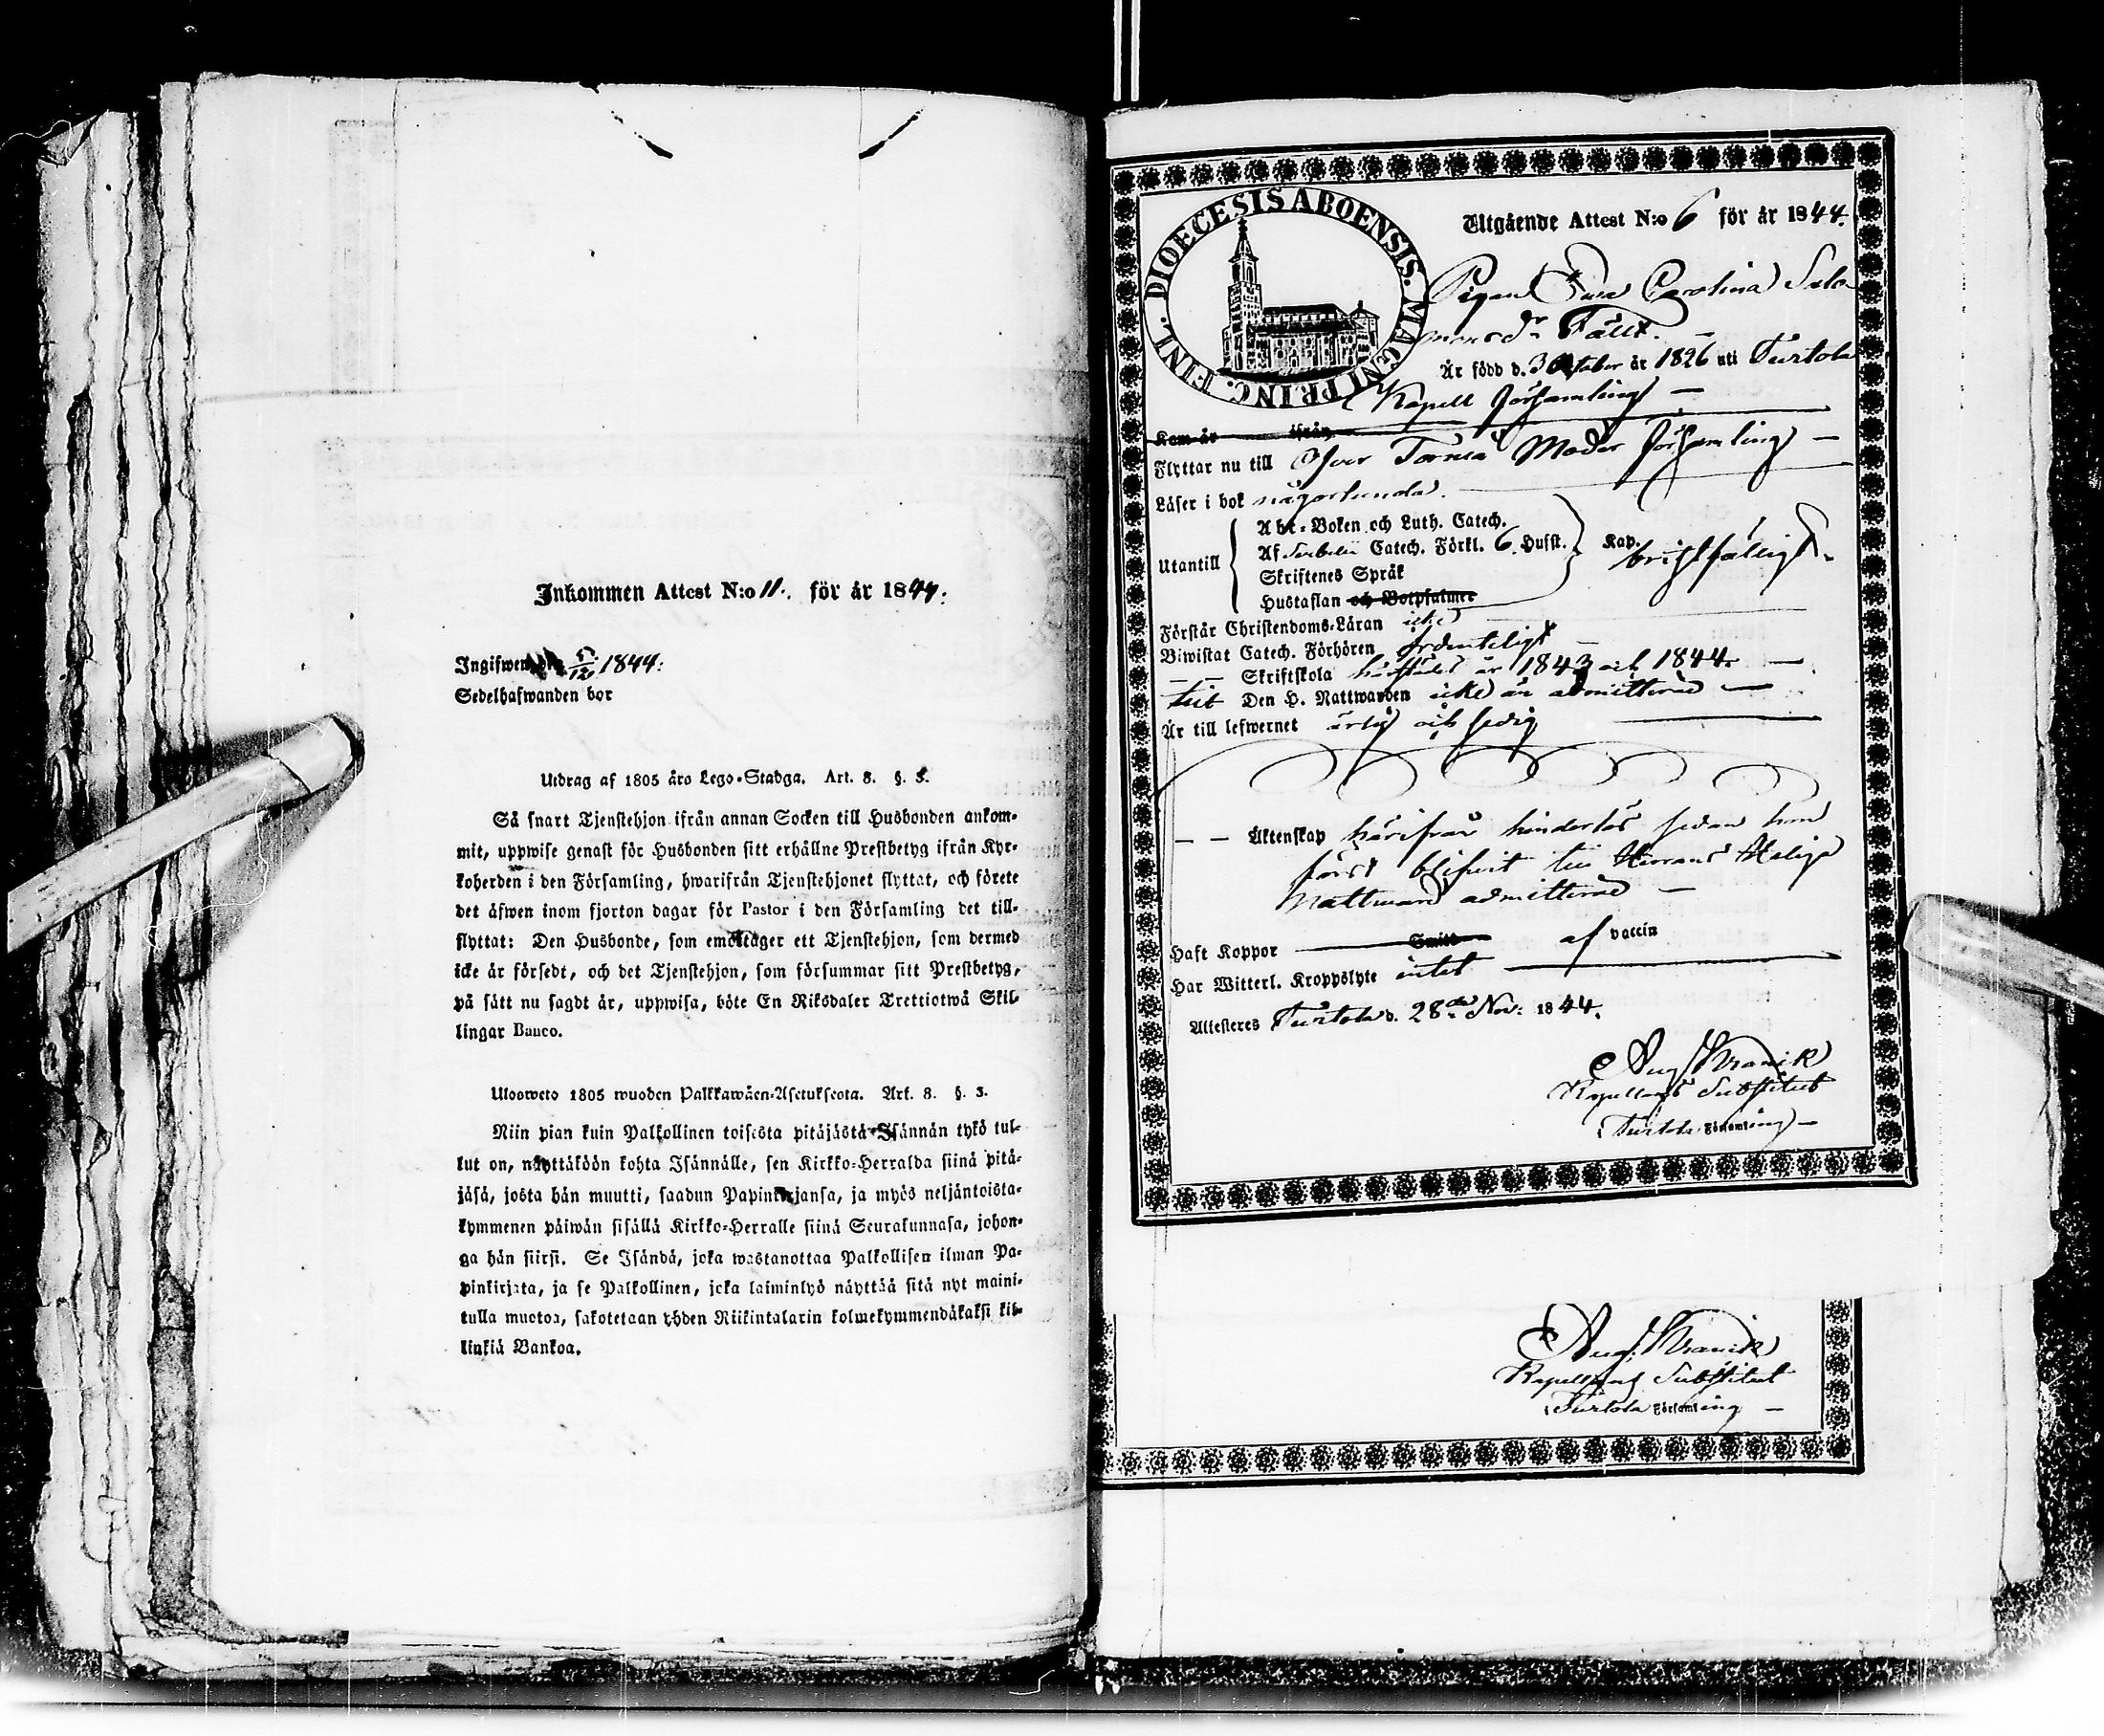 Inkommen Attest N:o 11. för år 1844.
Ingifwen den 5/12 1844.
Sedelhafwanden bor
Utdrag af 1805 års Lego-Stadga. Art. 8. §. 3.
Så snart Tjenstehjon ifrån annan Socken till Husbonden ankom-
mit, uppwise genast för Husbonden sitt erhållne Prestbetyg ifrån Kyr-
koherden i den Församling, hwarifrån Tjenstehjonet flyttat, och förete
det äfwen inom fjorton dagar för Pastor i den Församling det till-
flyttat: Den Husbonde, som emottager ett Tjenstehjon, som dermed
icke är försedt, och det Tjenstehjon, som försummar sitt Prestbetyg,
på sätt nu sagdt är, uppwisa, böte En Riksdaler Trettiotwå Skil-
lingar Banco.
Ulosweto 1805 wuoden Palkkawäen-Asetuksesta. Art. 8. §. 3.
Niin pian kuin Palkollinen toisesta pitäjästä Isännän tykö tul-
lut on, näyttäköön kohta Isännälle, sen Kirkko-Herralda siinä pitä-
jäsä, josta hän muutti, saadun Papinkirjansa, ja myös neljäntoista-
kymmenen päiwän sisällä Kirkko-Herralle siinä Seurakunnasa, johon-
ga hän siirsi. Se Isändä, joka wastanottaa Palkollisen ilman Pa-
pinkirjata, ja se Palkollinen, joka laiminlyö näyttää sitä nyt maini-
tulla muotoa, sakotetaan yhden Riikintalarin kolmekymmendäkaksi kil-
linkiä Bankoa.
DIOECESIS ABOENSIS. MAGNI PRINC. FINL.
Utgående Attest N:o 6 för år 1844.
Pigan Ewa Carolina Salo
monsdr Fält.
Är född d. 3 October år 1826 uti Turtola
Kapell församling
Kom år ifrån
Flyttar nu till Öfver Torneå Moder församling
Läser i bok någorlunda.
Utantill
Abc-Boken och Luth. Catech.
Af Catech. Förkl. 6. Husst. Kap. bristfälligt.
Skriftenes Språk
Hustaflan och Botpsalmer
Förstår Christendoms-Läran icke
Biwistat Catech. Förhören ordenteligt
— — Skriftskola härstädes år 1843 och 1844.
till Den H. Nattwarden icke än admitterad
Är till lefwernet ärlig och sedig
— — Äktenskap härifrån hinderlös sedan hon
först blifvit till Herrans Heliga
Nattward admitterad
Haft Koppor Smitt af vaccin
Har Witterl. Kroppslyte intet
Attesteres Turtola d. 28de Nov: 1844.
Aug
Kapellans Substitut
i Turtola Församling
Aug:
Kapellans Substitut
i Turtola Församling